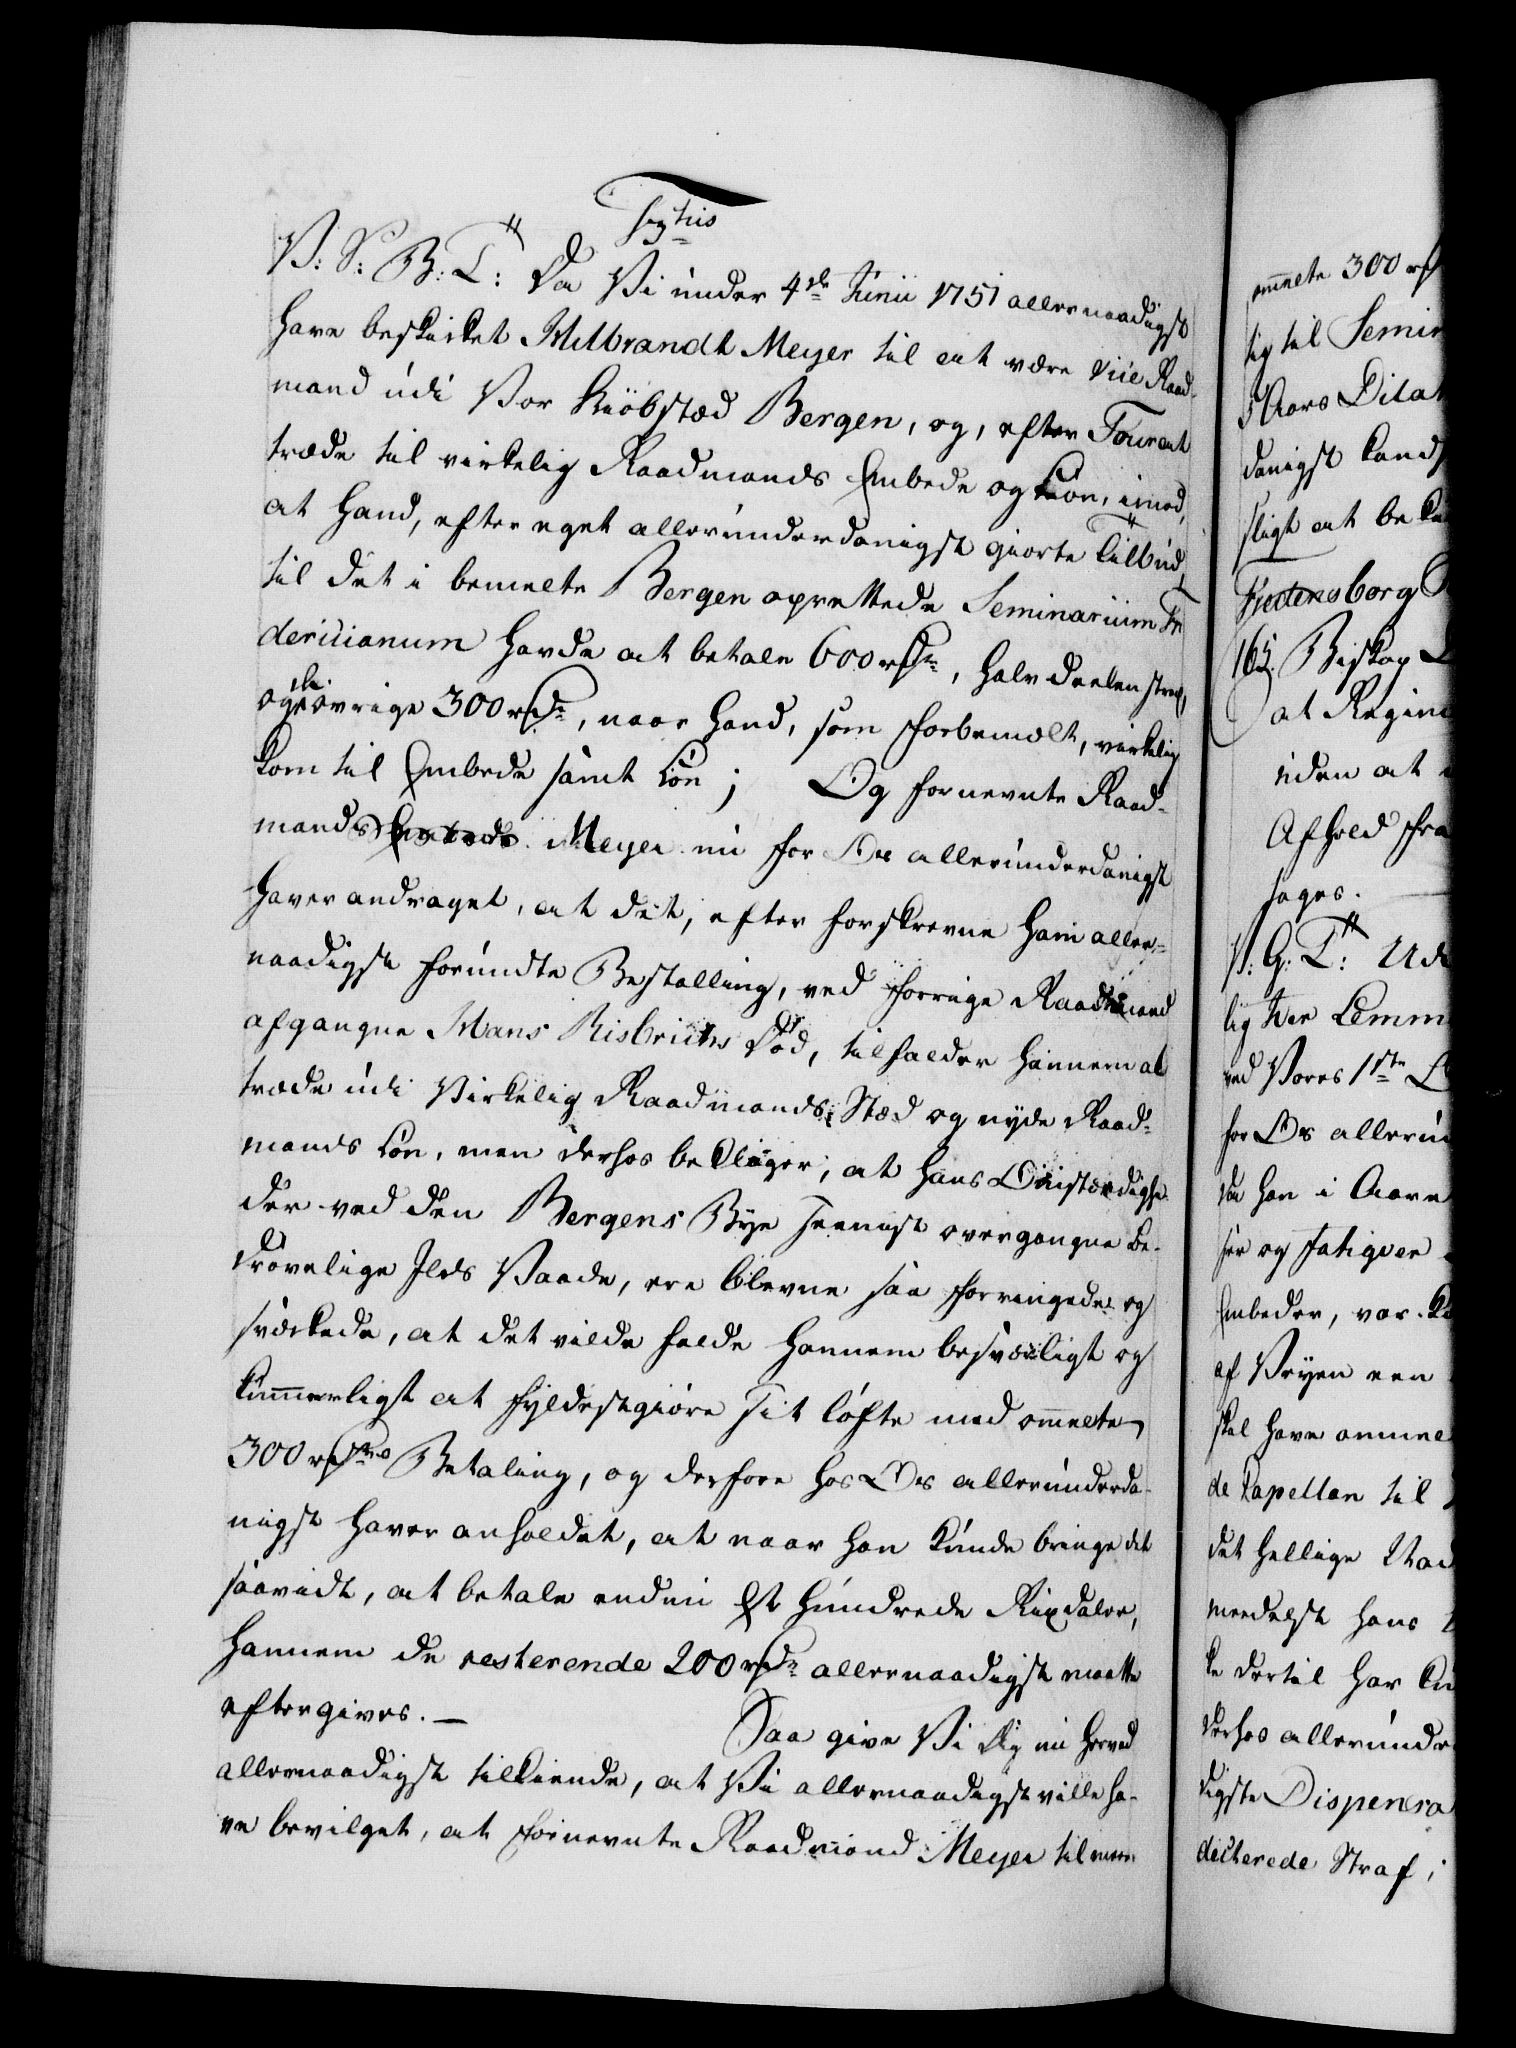 V: S: B: T: Da Vi under 4de Junii 1751 allernaadigst
have beskicket Hilbrandt Meyer til at være Vice Raad-
mand udi Vor Kiöbstæd Bergen, og, efter Tour at
træde til virkelig Raadmands Embede og Løn, imod,
at Hand, efter eget allerunderdanigst giorte Tilbud,
til det i bemelte Bergen oprettede Seminarium Fri
dericianum havde at betale 600 rdr, halv deelen strax,
og de øvrige 300 rdr, naar Hand, som forbemælt, virkelig
kom til Embede samt Løn; Og fornevnte Raad-
mand Meyer nu for Os allerunderdanigst
haver andraget, at det, efter forskrevne Ham aller-
naadigst forundte Bestalling, ved forrige Raadmand
afgangne Hans Risbrichts Död, tilfalder Hannem at
træde udi Virkelig Raadmands Stæd og nyde Raad-
mands Løn, men derhos beklager, at hans Omstændighe-
der ved den Bergens Bye seenest overgangne be-
drøvelige Ilds Vaade, ere blevne saa forringede og
svækkede, at det vilde falde Hannem besværligt og
kummerligt at fyldestgiøre sit løfte med ommelte
300 rdrs Betaling, og derfore hos Os allerunderda-
nigst haver anholdet, at naar han kunde bringe det
saavidt, at betale endnu Et Hundrede Rixdaler,
Hannem de resterende 200 rdr allernaadigst maatte
eftergives. — Saa give Vi Dig nu herved
allernaadigst tilkiende, at Vi allernaadigst ville ha-
ve bevilget, at fornevnte Raadmand Meyer til meer-
ommelte 300 rd
sig til Semin
5 Aars Dilat
danigst Cands
sligt at beka
Friedensborg
165. Biskop
at Regim
uden at
Afhold fra
tages.
V: G: T: Ud
lig Her Lemm
ved Vores 1ste
for Os allerun
da han i Aare
ser og Fatiqver
Embeder, var
af Veyen een
skal have anmel
de Capellan til
det hellige Nad
meedelst hans
ke dertil har kun
derhos allerunder
digste Dispensa
dicterede Straf,